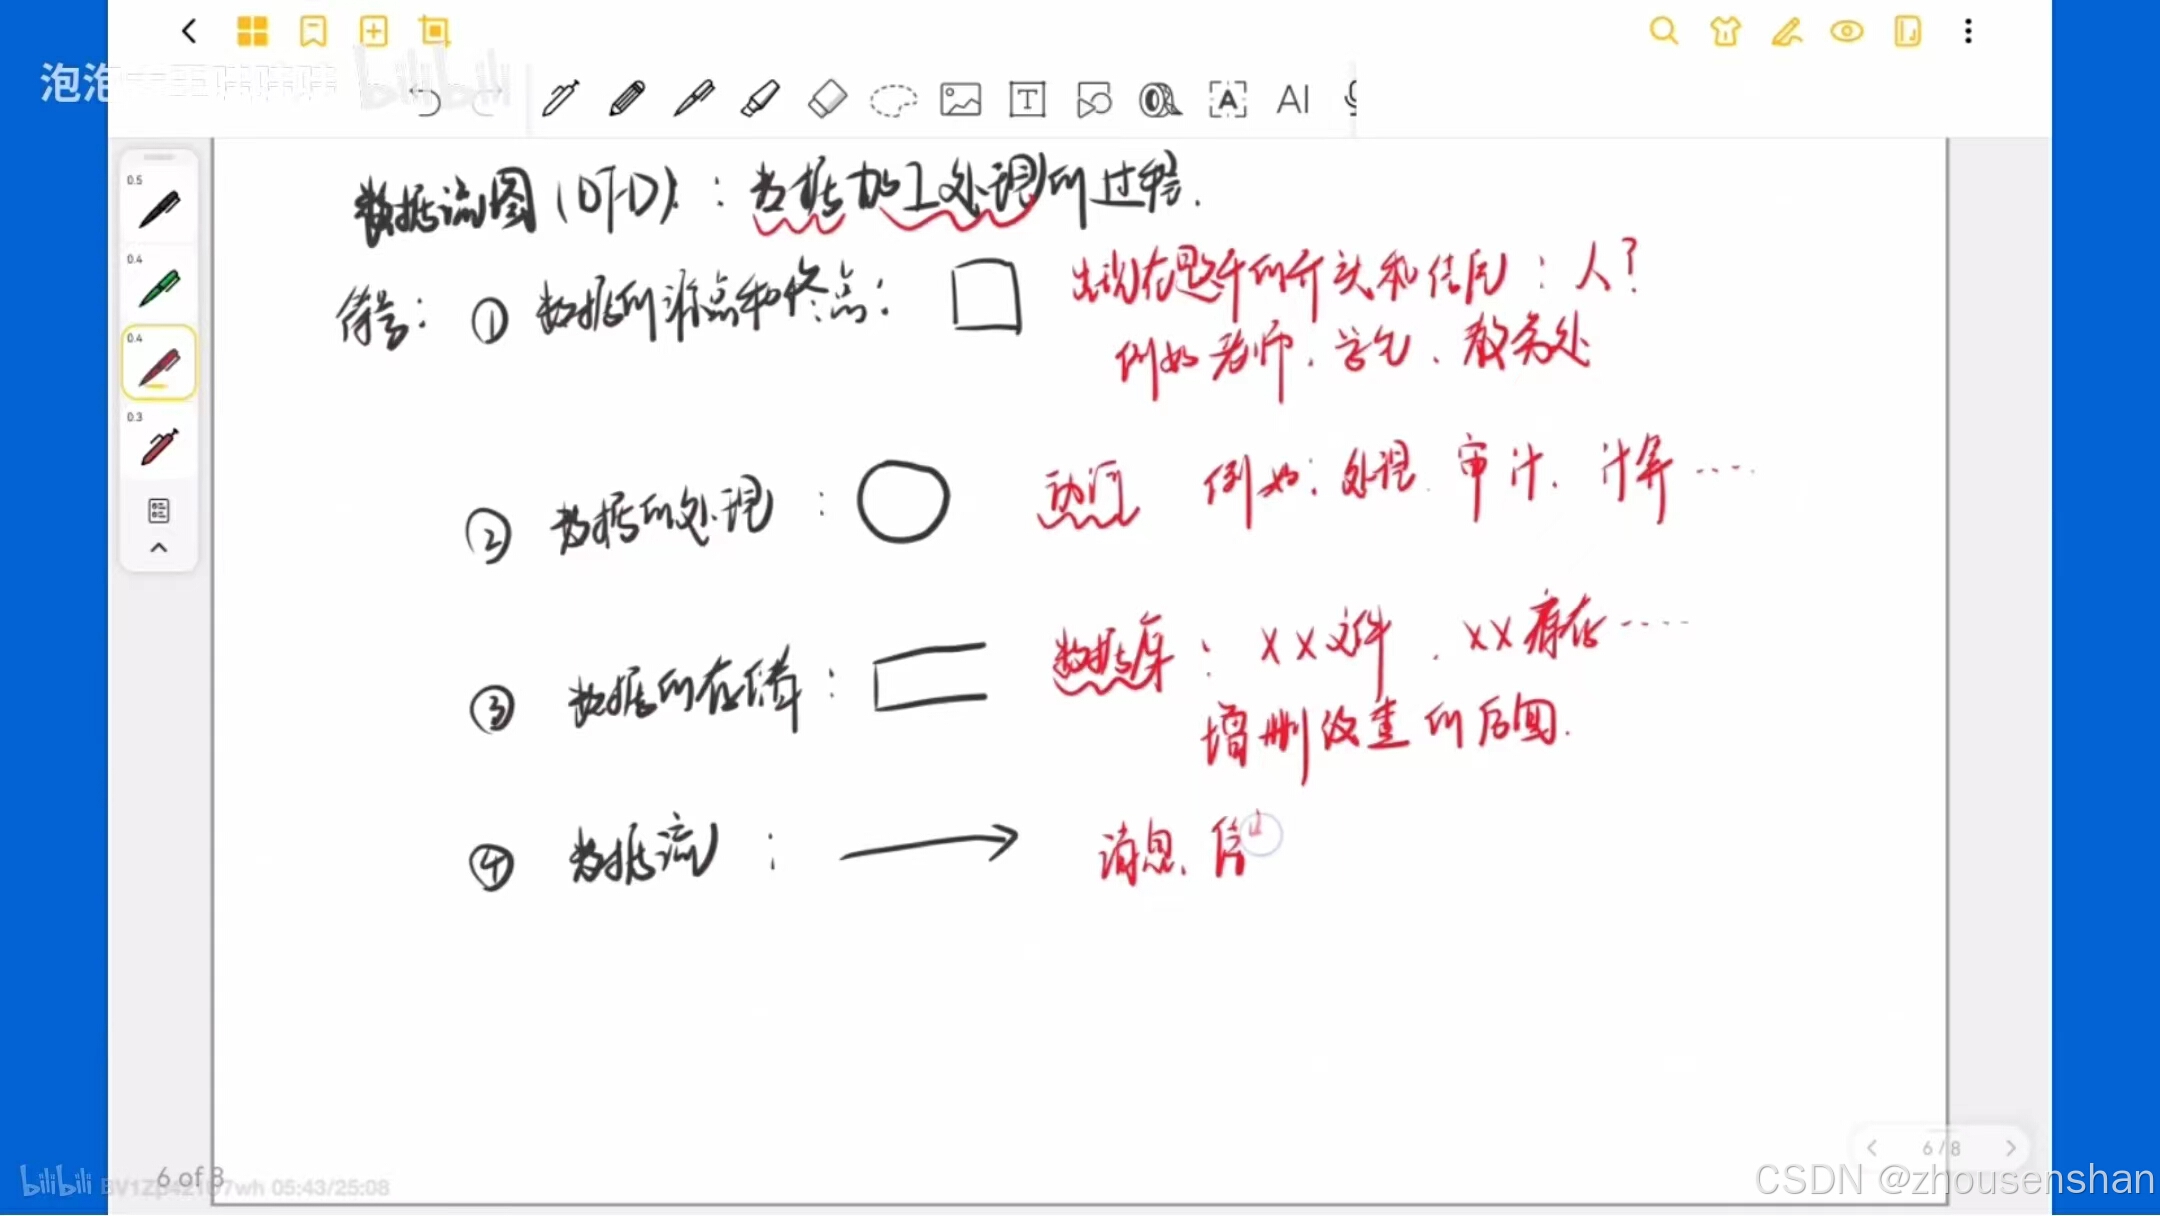 泡泡 bilibili
AI
0.5
0.4
0.4
0.3
数据流图(DFD)：数据加工处理的过程.
符号：① 数据的源点和终点： 出现在题干的开头和结尾：人？
例如老师、学生、教务处
② 数据的处理： 动词 例如：处理、审计、计算……
③ 数据的存储： 数据库：XX文件、XX库存……
增删改查的后面.
④ 数据流： 消息、信
6/8
6 of 8
bilibili 05:43/25:08
CSDN @zhousenshan